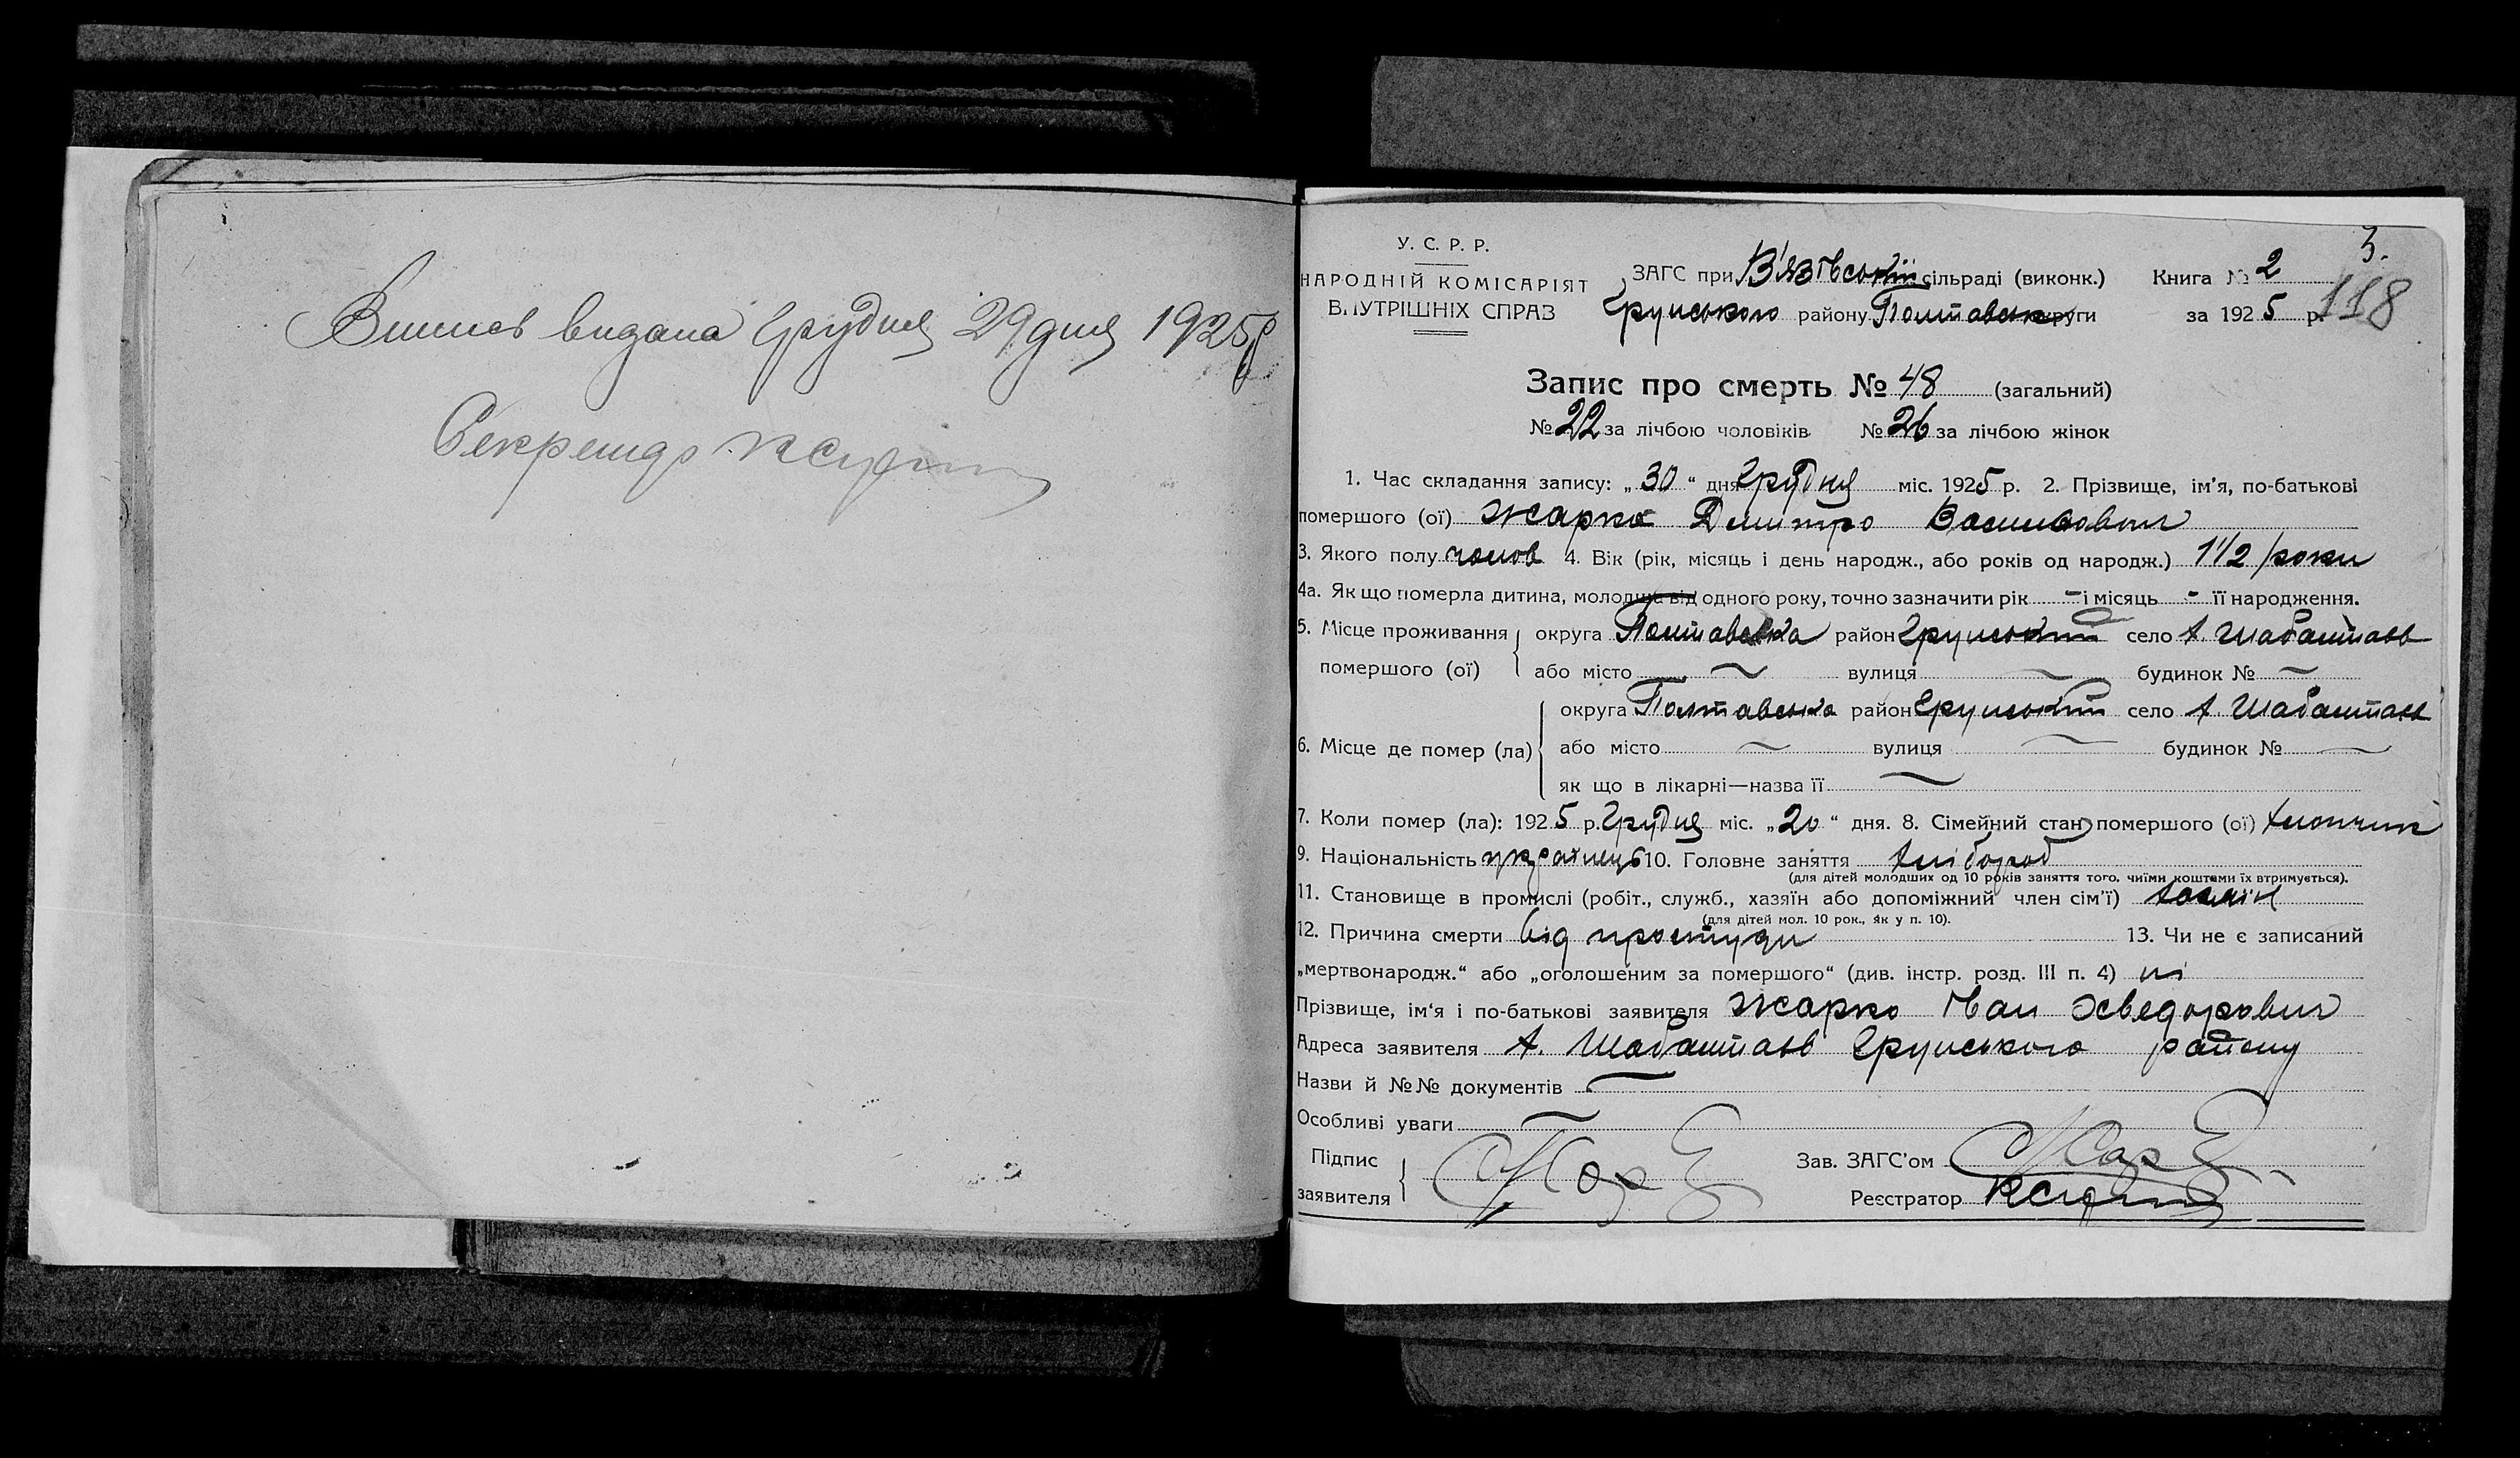 Випись видана Грудня 29 дня 1925 р
Секретар
3.
118
У. С. Р. Р.
НАРОДНІЙ КОМІСАРІЯТ
ВНУТРІШНІХ СПРАВ
ЗАГС при В'язівській сільраді (виконк.) Книга № 2
Грунського району Полтавськ округи за 1925 р.
Запис про смерть № 48 (загальний)
№ 22 за лічбою чоловіків № 26 за лічбою жінок
1. Час складання запису: „30“ дня Грудня міс. 1925 р. 2. Прізвище, ім'я, по-батькові
помершого (ої) Жарко Дмитро Васильович
3. Якого полу чолов 4. Вік (рік, місяць і день народж., або років од народж.) 1 1/2 роки
4а. Як що померла дитина, молодша від одного року, точно зазначити рік - і місяць - її народження.
5. Місце проживання округа Полтавська район Грунський село х. Шабалтаєв
помершого (ої) або місто ~ вулиця ~ будинок № ~
округа Полтавська район Грунський село х. Шабалтаєв
6. Місце де помер (ла) або місто ~ вулиця ~ будинок № ~
як що в лікарні—назва її ~
7. Коли помер (ла): 1925 р. Грудня міс. „20“ дня. 8. Сімейний стан помершого (ої) хлопчик
9. Національність українець 10. Головне заняття хлібороб
(для дітей молодших од 10 років заняття того, чиїми коштами їх втримується).
11. Становище в промислі (робіт., служб., хазяїн або допоміжний член сім'ї) хазяїн
(для дітей мол. 10 рок., як у п. 10).
12. Причина смерти від простуди 13. Чи не є записаний
„мертвонародж.“ або „оголошеним за помершого“ (див. інстр. розд. III п. 4) ні
Прізвище, ім'я і по-батькові заявителя Жарко Іван Хведорович
Адреса заявителя х. Шабалтаєв Грунського району
Назви й №№ документів ~
Особливі уваги ~
Підпис
заявителя
Зав. ЗАГС'ом
Реєстратор